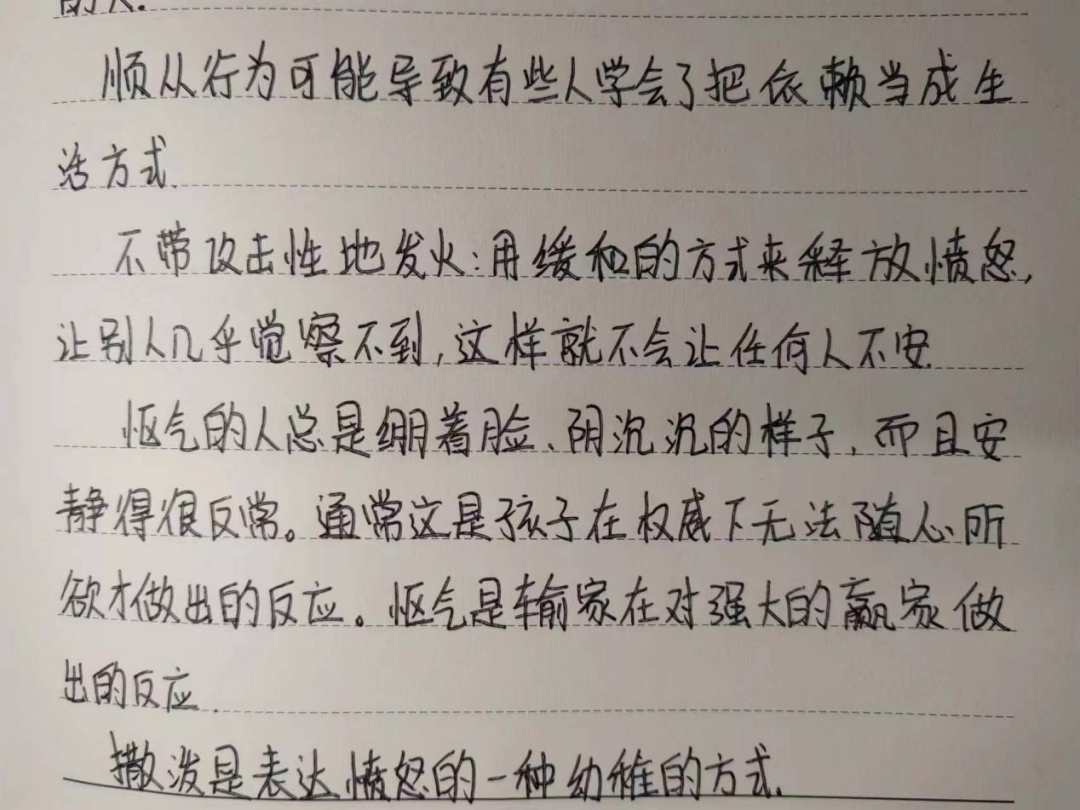 的人.
顺从行为可能导致有些人学会了把依赖当成生
活方式.
不带攻击性地发火:用缓和的方式来释放愤怒,
让别人几乎觉察不到,这样就不会让任何人不安.
怄气的人总是绷着脸、阴沉沉的样子,而且安
静得很反常。通常这是孩子在权威下无法随心所
欲才做出的反应。怄气是输家在对强大的赢家做
出的反应.
撒泼是表达愤怒的一种幼稚的方式.